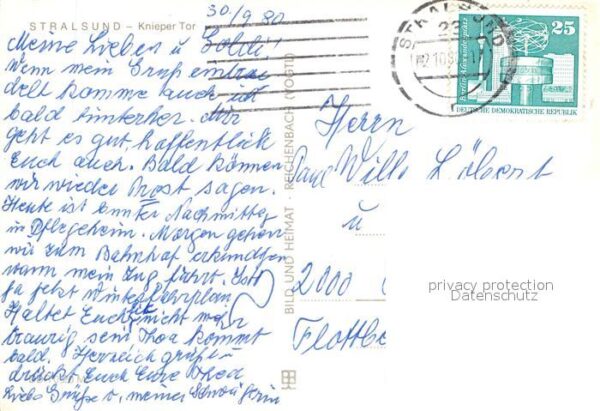 30/9 80
STRALSUND – Knieper Tor
Meine Lieben u. Goldi!
Wenn mein Gruß eintru
delt komme auch ich
bald hinterher. Mir
geht es gut, hoffentlich
Euch auch. Bald können
wir wieder Prost sagen.
Heute ist Nachmittag
in Pflegeheim. Morgen gehen
wir zum Bahnhof erkundigen
wann mein Zug fährt. Ist
ja jetzt Winterfahrplan
Haltet Euch nicht mehr
traurig sein kommt
bald. Herzlich grüßt u
drückt Euch Eure
Liebe Grüße v. meiner Schwägerin
BILD UND HEIMAT · REICHENBACH (VOGTL)
STRALSUND
23
02.10.80
25
DEUTSCHE DEMOKRATISCHE REPUBLIK
Herrn
Paul Willi Löbert
u
2000
Flottbe
privacy protection
Datenschutz